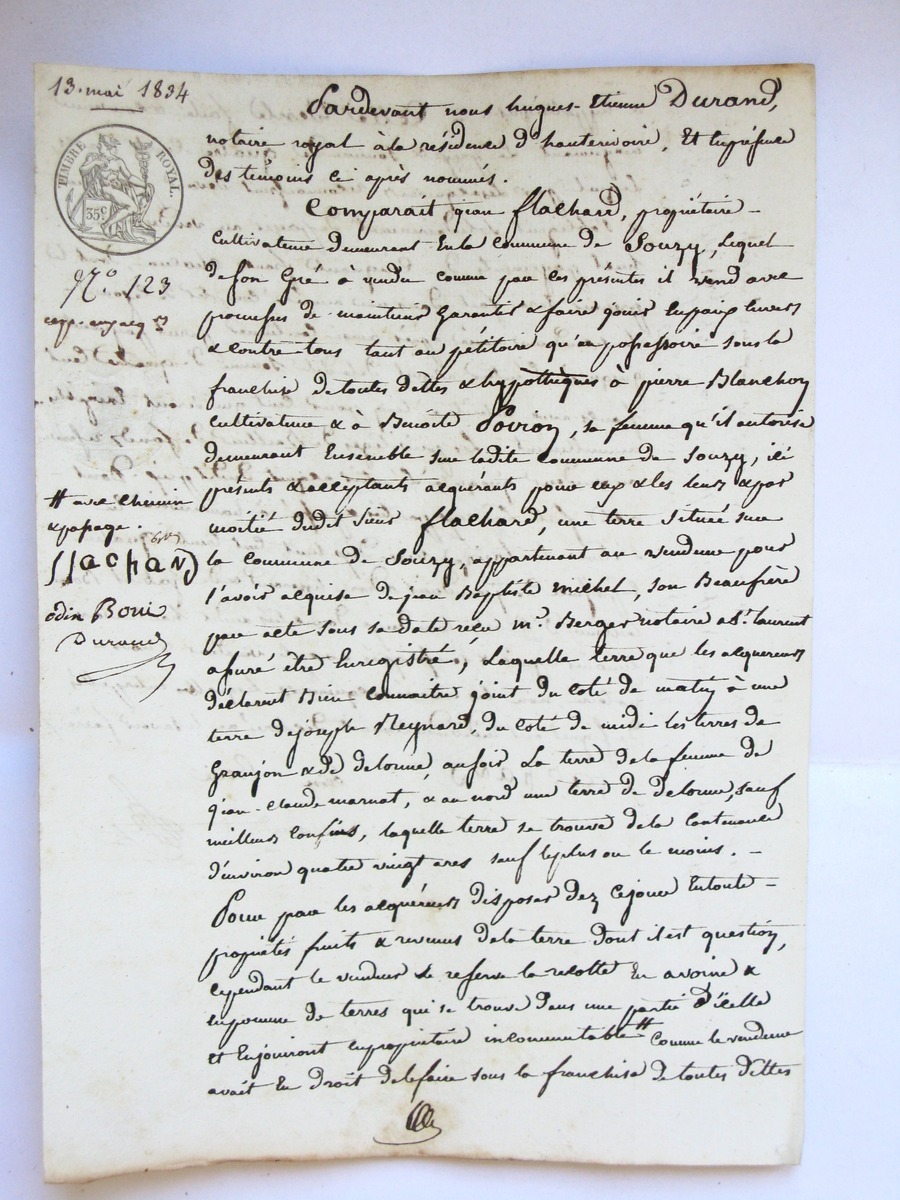 13. mai 1834
TIMBRE ROYAL.
35c
N.o 123
exp. en jacq
# avec chemin
& passage.
flachard
odin Boni
Durand
Pardevant nous hugues-Etienne Durand,
notaire royal à la résidence d'hauterivoire, Et en présence
des témoins ci après nommés.
Comparait jean flachard, propriétaire -
Cultivateur demeurant En la commune de Souzy, Lequel
de son Gré à vendu comme par ces présentes il vend avec
promesses de maintenir Garantir & faire jouir en paix envers
& contre tous tant au pétitoire qu'au possessoire sous la
franchise de toutes dettes & hypothèques à pierre Blanchon
cultivateur & à Benoite Poirion, sa femme qu'il autorise
demeurant Ensemble sur ladite commune de Souzy, ici
présents & acceptants acquérants pour eux & les leurs & par
moitié dudit sieur flachard, une terre située sur
la commune de Souzy, appartenant au vendeur pour
l'avoir acquise de jean Baptiste michel, son Beaufrère
par acte sous sa date reçu m.e Berger notaire a St. laurent
assuré être Enregistré, Laquelle terre que les acquereurs
déclarent Bien connaitre joint du coté de matin à une
terre de joseph Meynard, du coté de midi les terres de
Granjon & de delorme, au soir La terre de la femme de
jean-Claude marnat, & au nord une terre de Delorme, sauf
meilleurs Confins, laquelle terre se trouve de la Contenance
d'environ quatre vingt ares sauf le plus ou le moins. -
Pour par les acquéreurs disposer dez ce jour En toute -
propriétés fruits & revenus de la terre dont il est question,
cependant le vendeur se reserve la recolte En avoine &
en pomme de terres qui se trouve dans une partie d'icelle
et En jouiront en propriétaire incommutable # Comme le vendeur
avait En droit de le faire sous la franchise de toutes dettes